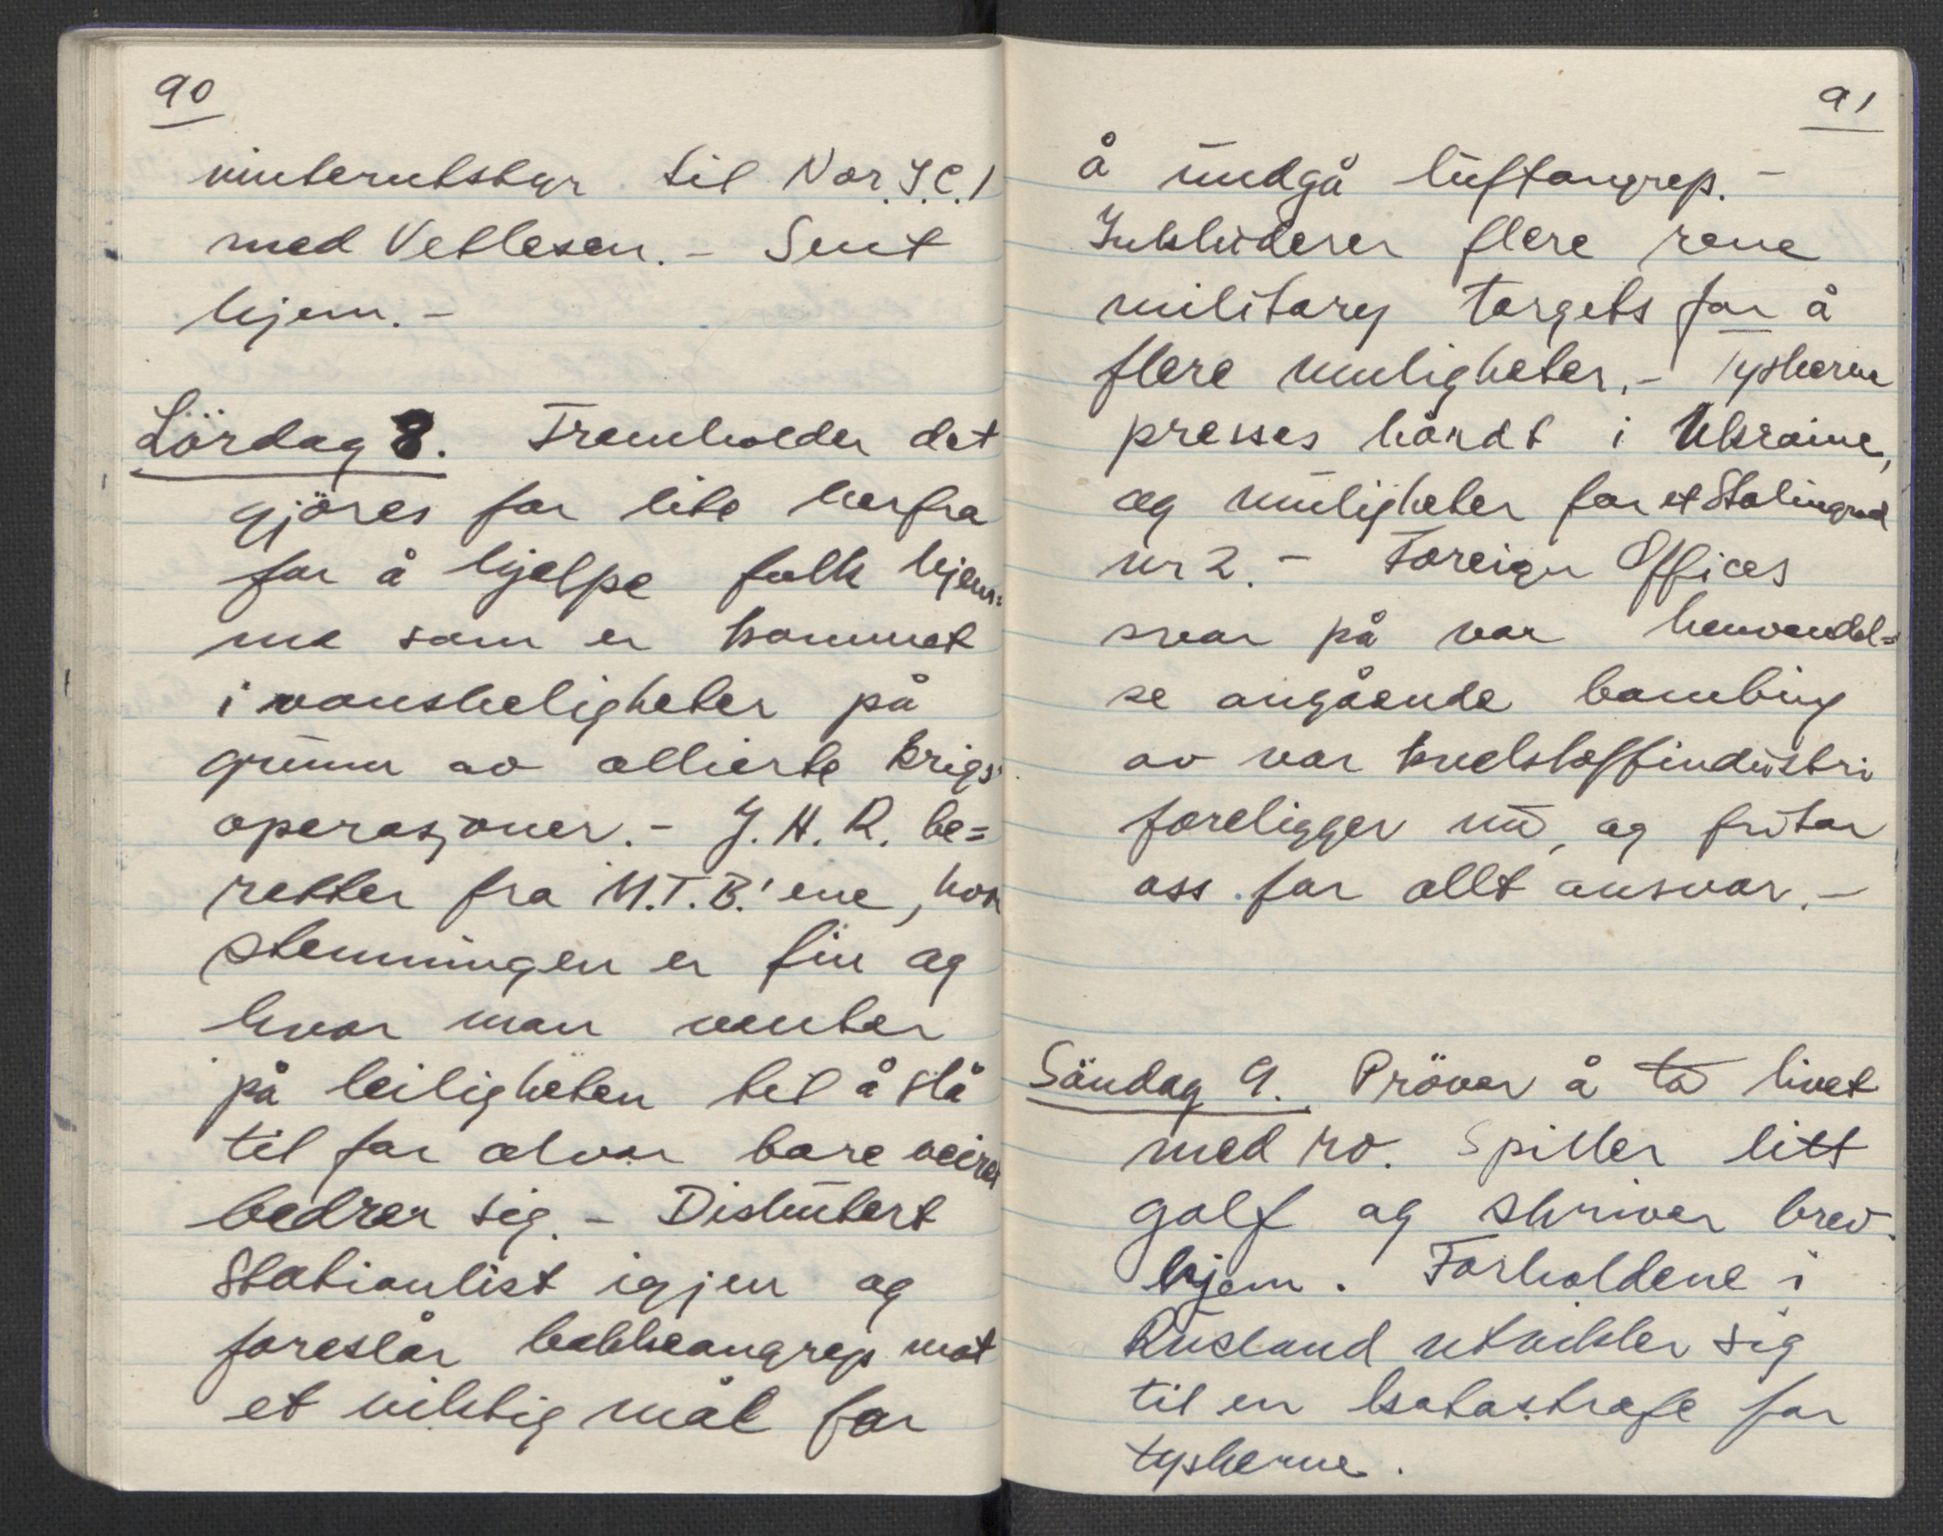 90
vinterutstyr til Nor.I.C.1
med Vetlesen. - Sent
hjem. -
Lördag 8. Fremholder det
gjöres for lite herfra
for å hjelpe folk hjem=
me som er kommet
i vanskeligheter på
grunn av allierte krigs
operasjoner. - J. H. R. be=
retter fra M.T.B.'ene, hvor
stemningen er fin og
hvor man venter
på leiligheten til å slå
til for alvor bare veiret
bedrer sig. - Diskutert
Stationlist igjen og
foreslår bakkeangrep mot
et viktig mål for
91
å undgå luftangrep. -
Inkluderer flere rene
military targets for å
flere muligheter. - Tyskerne
presses hårdt i Ukraine,
og muligheter for et Stalingrad
nr 2. - Foreign Offices
svar på vår henvendel=
se angående bombing
av vår kvelstoffindustri
foreligger nu, og fritar
oss for allt ansvar. -
Söndag 9. Pröver å ta livet
med ro. Spiller litt
golf og skriver brev
hjem. Forholdene i
Russland utvikler sig
til en katastrofe for
tyskerne.